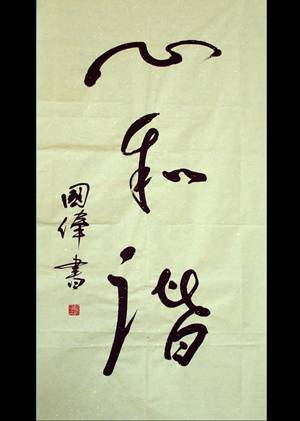 心和谐
國偉書